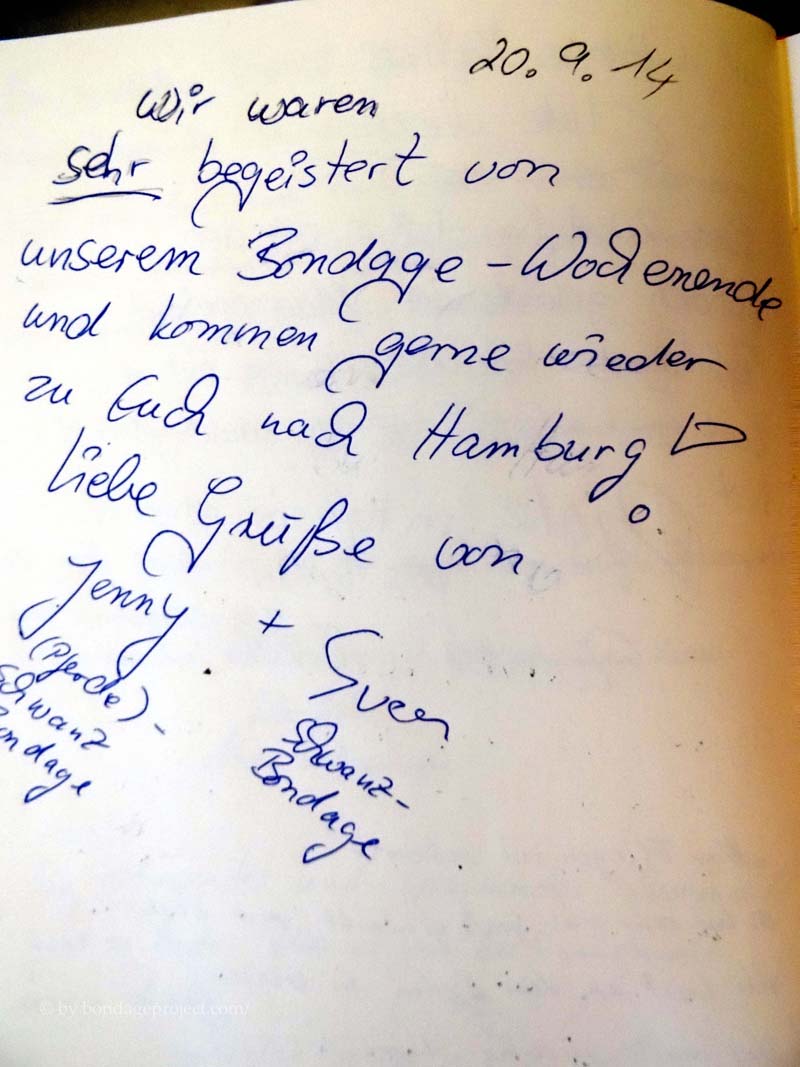 20. 9. 14
Wir waren
sehr begeistert von
unserem Bondage-Wochenende
und kommen gerne wieder
zu Euch nach Hamburg!
Liebe Grüße von
Jenny + Sven
(Pferde)-
Schwanz
Bondage
Schwanz-
Bondage
© by bondageproject.com/